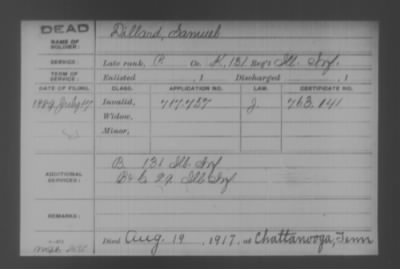 DEAD
NAME OF SOLDIER: Dillard, Samuel
SERVICE: Late rank, P Co. K, 131 Reg't Ill. Inf.
TERM OF SERVICE: Enlisted , 1 Discharged , 1
DATE OF FILING. CLASS. APPLICATION NO. LAW. CERTIFICATE NO.
1889, July 17 Invalid, 717.757 J. 763.141
Widow,
Minor,
ADDITIONAL SERVICES: B 131 Ill. Inf
B & C 29 Ill. Inf
REMARKS:
Died Aug. 19, 1917, at Chattanooga, Tenn